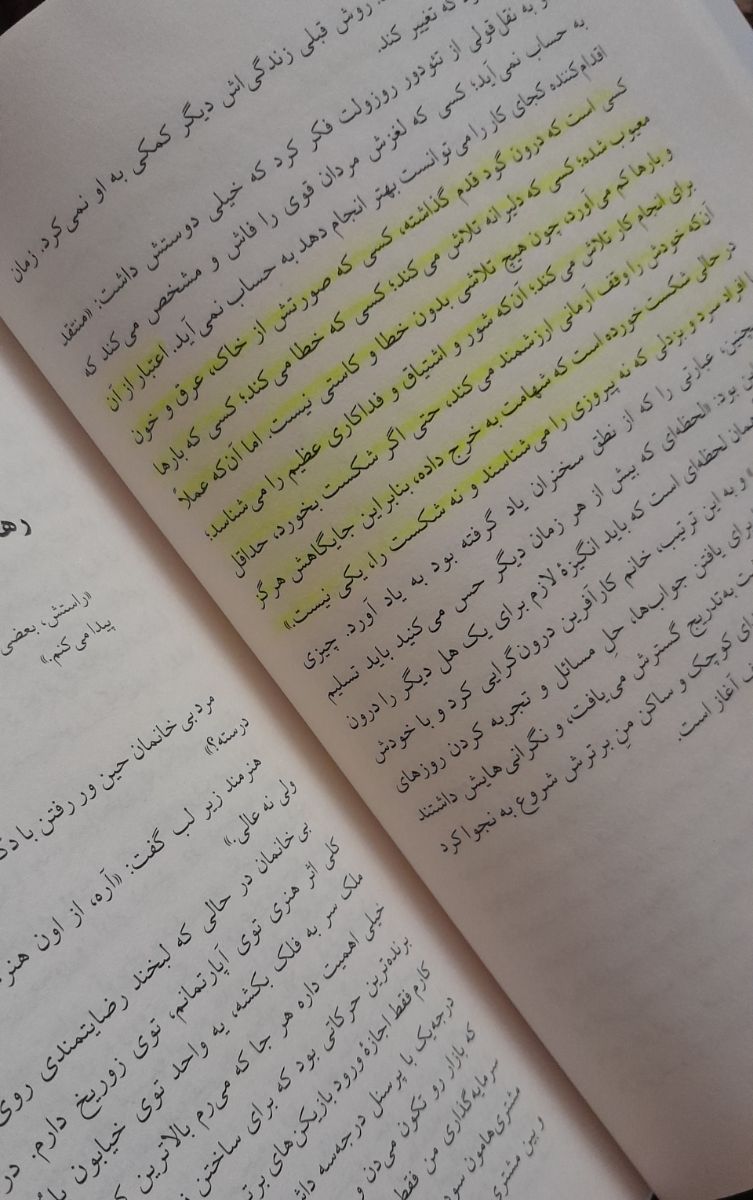 روش قبلی زندگی‌اش دیگر کمکی به او نمی‌کرد. زمان
که تغییر کند.
و به نقل‌قولی از تئودور روزولت فکر کرد که خیلی دوستش داشت: «منتقد
به حساب نمی‌آید؛ کسی که لغزش مردان قوی را فاش و مشخص می‌کند که
اقدام‌کننده کجای کار را می‌توانست بهتر انجام دهد به حساب نمی‌آید. اعتبار از آن
کسی است که درون گود قدم گذاشته، کسی که صورتش از خاک، عرق و خون
معیوب شده؛ کسی که دلیرانه تلاش می‌کند؛ کسی که خطا می‌کند؛ کسی که بارها
و بارها کم می‌آورد، چون هیچ تلاشی بدون خطا و کاستی نیست. اما آن‌که عملاً
برای انجام کار تلاش می‌کند؛ آن‌که شور و اشتیاق و فداکاری عظیم را می‌شناسد؛
آن‌که خودش را وقف آرمانی ارزشمند می‌کند، حتی اگر شکست بخورد، حداقل
در حالی شکست خورده است که شهامت به خرج داده، بنابراین جایگاهش هرگز
افراد سرد و بزدلی که نه پیروزی را می‌شناسند و نه شکست را، یکی نیست.»
عبارتی را که از نطق سخنران یاد گرفته بود به یاد آورد. چیزی
بود: «لحظه‌ای که بیش از هر زمان دیگر حس می‌کنید باید تسلیم
لحظه‌ای است که باید انگیزهٔ لازم برای یک هل دیگر را درون
و به این ترتیب، خانم کارآفرین درون‌گرایی کرد و با خودش
برای یافتن جواب‌ها، حلِ مسائل و تجربه کردن روزهای
به‌تدریج گسترش می‌یافت، و نگرانی‌هایش داشتند
کوچک و ساکن منِ برترش شروع به نجوا کرد
آغاز است.
«راستش، بعضی
پیدا می کنم.»
مرد بی خانمان حین ور رفتن با
درسته؟»
هنرمند زیر لب گفت: «آره، از اون
ولی نه عالی.»
بی خانمان در حالی که لبخند رضایتمندی روی
کلی اثر هنری توی آپارتمانم، توی زوریخ دارم. در
ملک سر به فلک بکشه، یه واحد توی خیابون
خیلی اهمیت داره هر جا که می‌رم بالاترین
برنده‌ترین حرکاتی بود که برای ساختن
کارم فقط اجازهٔ ورود بازیکن‌های
درجه‌یک با پرسنل درجه‌سه
که بازار رو تکون می‌دن و
سرمایه‌گذاری من فقط
مشتری‌هامون